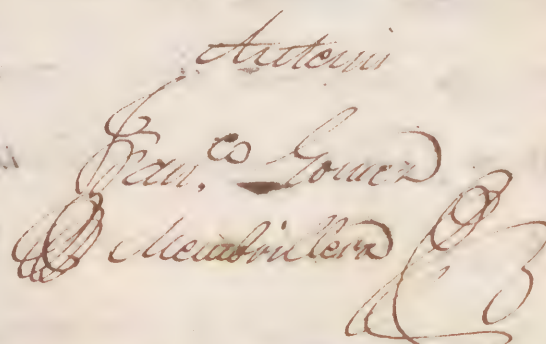 Ante mi
Fran.co Gomez
Membrillera